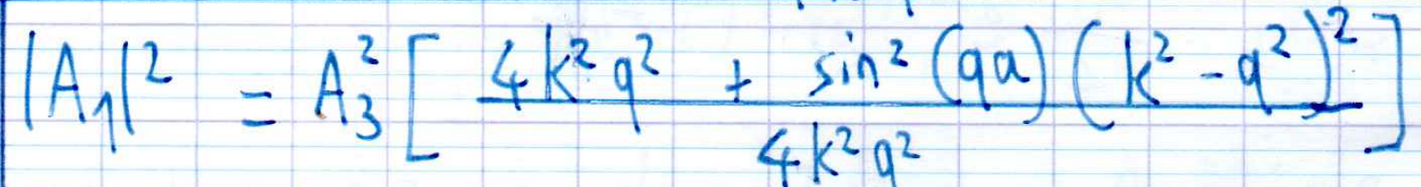 |A₁|² = A₃² [ (4k²q² + sin²(qa)(k² - q²)²) / (4k²q²) ]